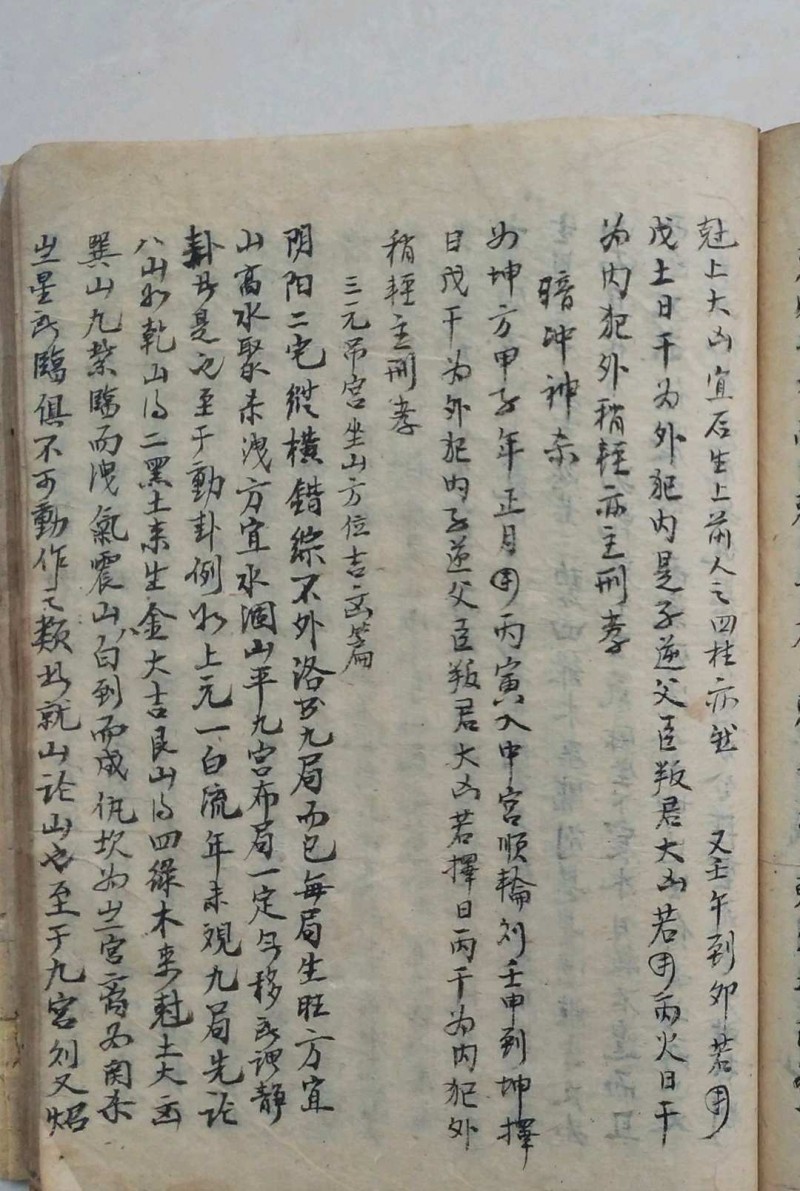 尅上大凶宜居生上前人之四柱亦然 又壬午到卯若用
戊土日干为外犯内是子逆父臣叛君大凶若用丙火日干
为内犯外稍輕亦主刑孝
暗冲神杀
如坤方甲子年正月用丙寅入中宮順輪到壬申到坤擇
日戊干为外犯内子逆父臣叛君大凶若擇日丙干为内犯外
稍輕主刑孝
三元吊宮坐山方位吉凶篇
阴阳二宅縱橫錯綜不外洛書九局而已每局生旺方宜
山高水聚杀洩方宜水涸山平九宮布局一定勿移所謂静
卦者是也至于動卦例如上元一白流年来观九局先论
八山如乾山得二黑土来生金大吉艮山得四綠木来尅土大凶
巽山九紫臨而洩氣震山一白到而成仇坎为坐宮离为関杀
坐星所臨俱不可動作之類此就山论山也至于九宮到又